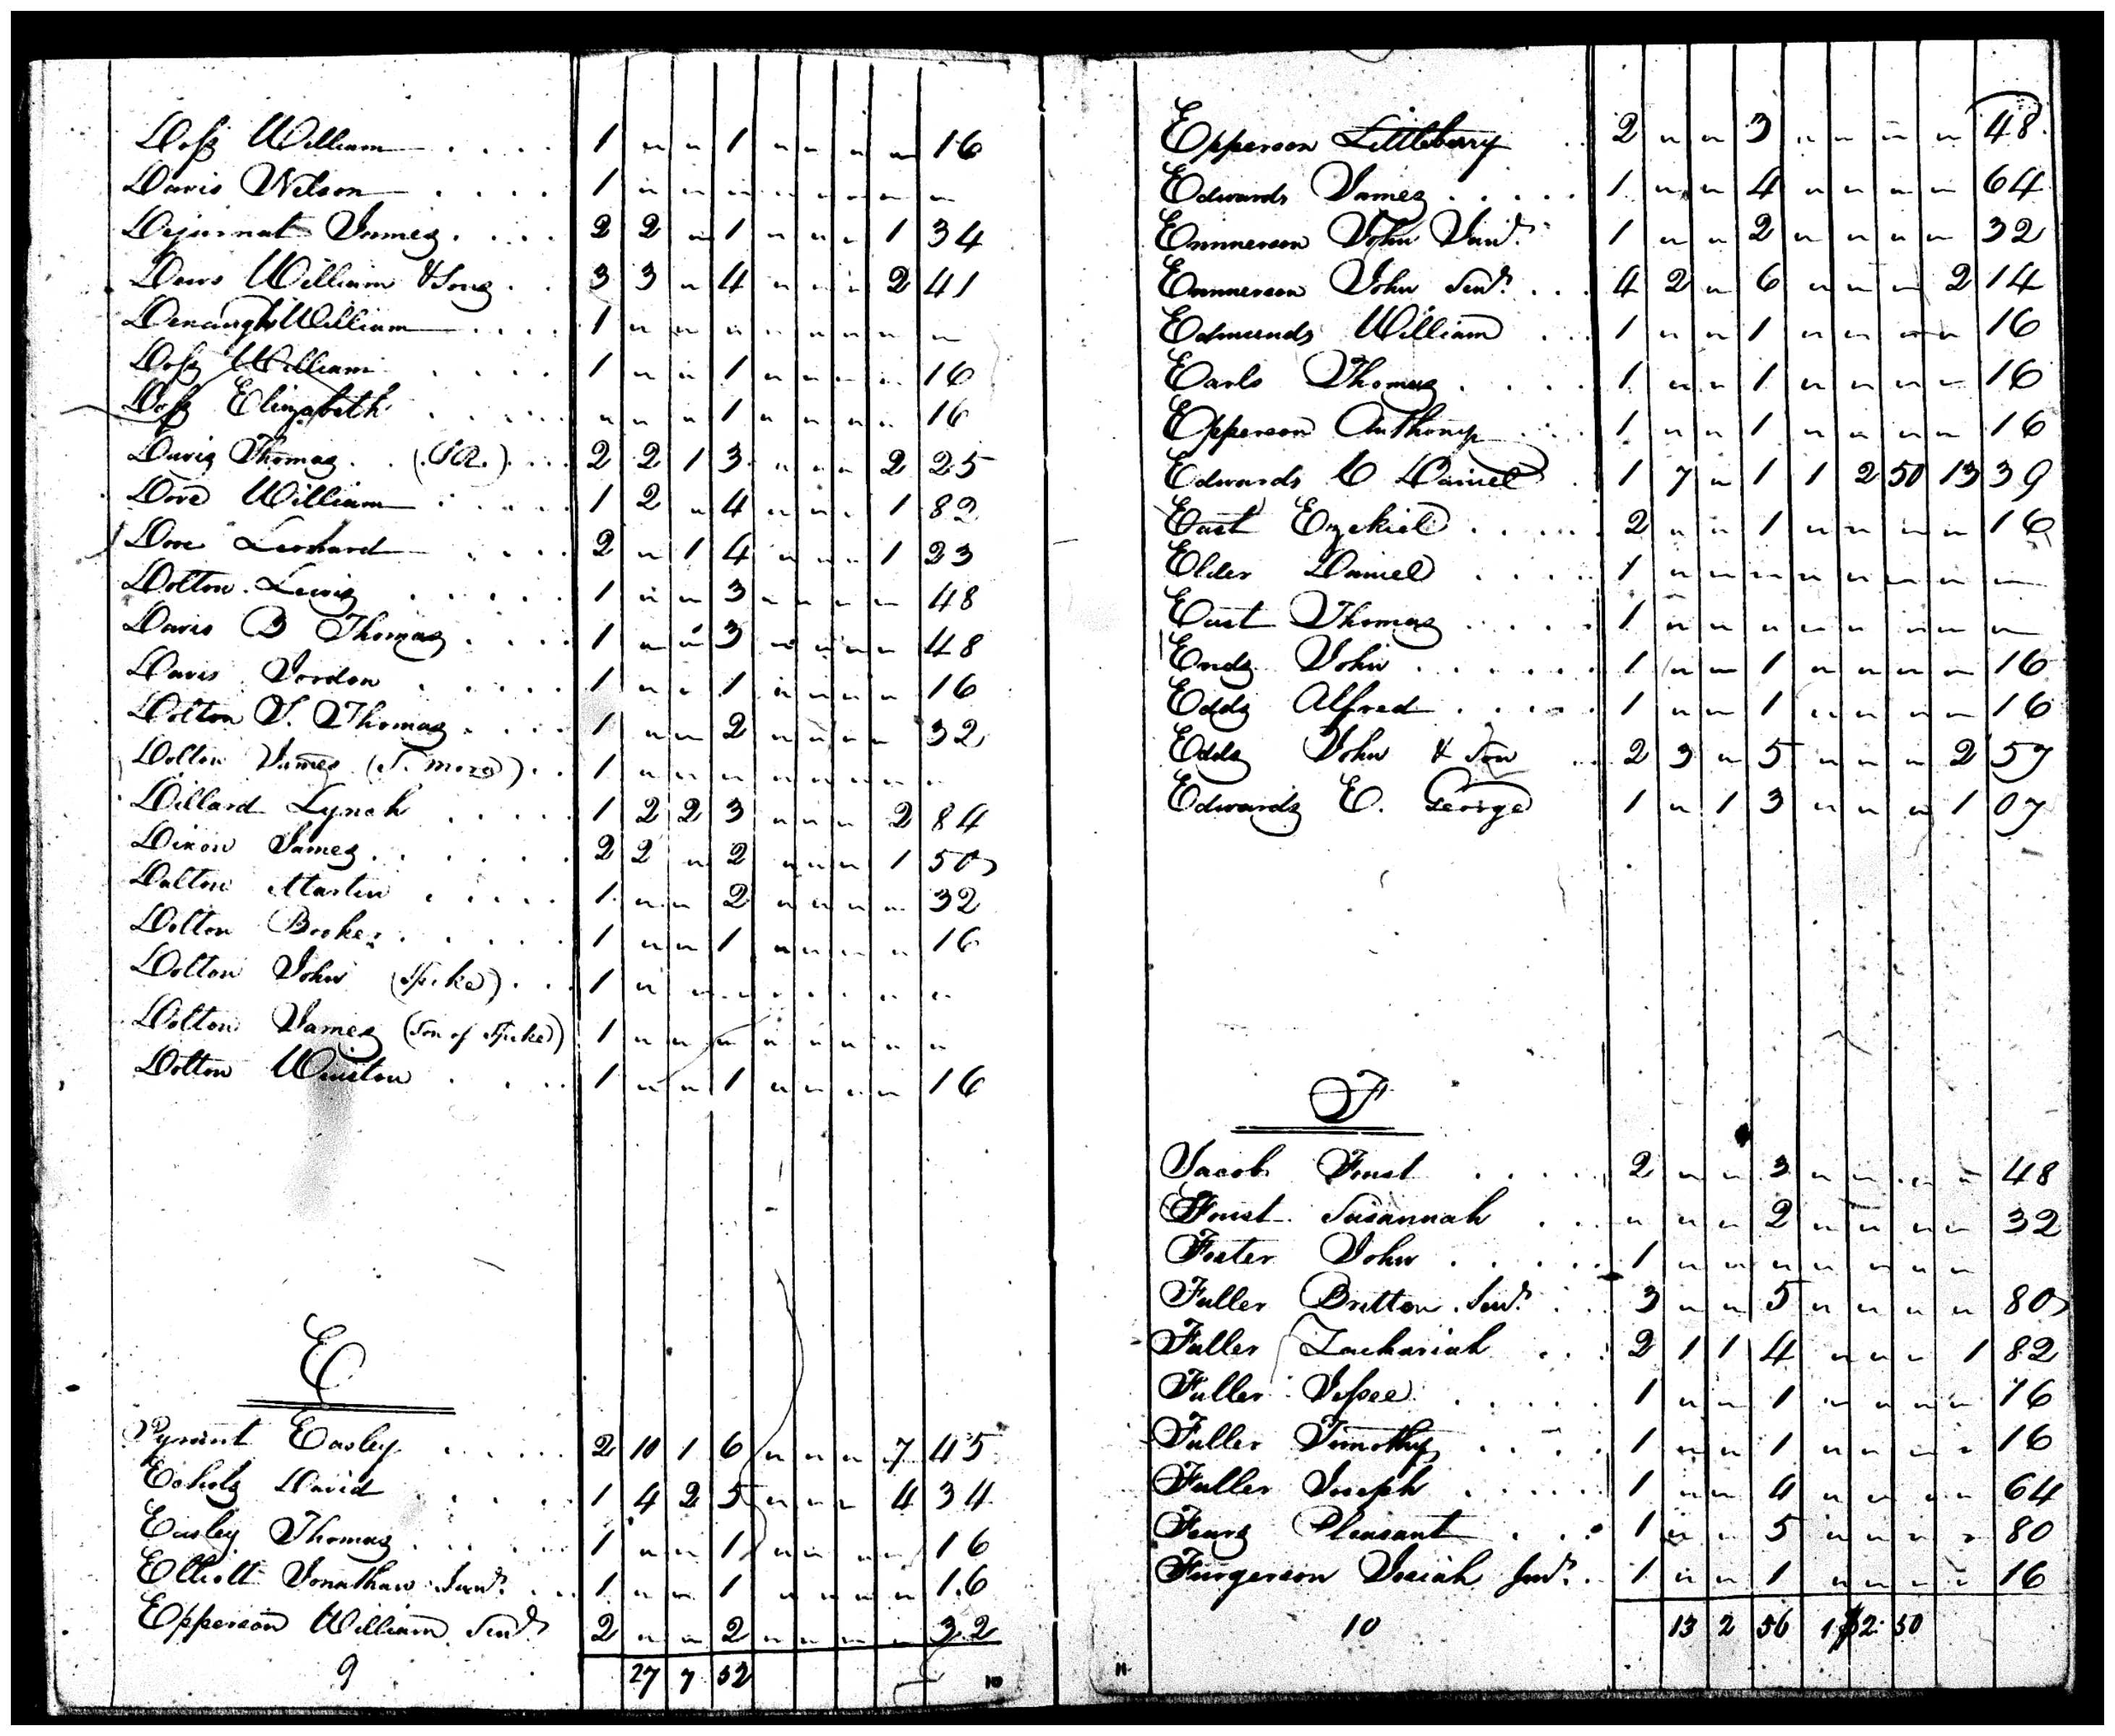 Doss William . . . . 1 " " 1 " " " " 16
Davis Nelson . . . . 1 " " " " " " " "
Dejarnat James . . . . 2 2 " 1 " " " 1 34
Daws William & Sons . . 3 3 " 4 " " " 2 41
William . . . . 1 " " " " " " " "
Doss William . . . . 1 " " 1 " " " " 16
Doss Elizabeth . . . . . " " " 1 " " " " 16
Davis Thomas . . ( ) . . . 2 2 1 3 " " " 2 25
Dove William . . . . . 1 2 " 4 " " " 1 82
Dove Leonard . . . . 2 " 1 4 " " " 1 23
Dolton Lewis . . . . . 1 " " 3 " " " " 48
Davis B Thomas . . . . 1 " " 3 " " " " 48
Davis Jordon . . . . . 1 " " 1 " " " " 16
Dolton T. Thomas . . . . 1 " " 2 " " " " 32
Dolton James ( ) . . 1 " " " " " " " "
Dillard Lynch . . . . . 1 2 2 3 " " " 2 84
Dixon James . . . . . . 2 2 " 2 " " " 1 50
Dalton Martin . . . . . 1 " " 2 " " " " 32
Dolton Booker . . . . . 1 " " 1 " " " " 16
Dolton John (Spike) . . . 1 " " " " " " " "
Dolton James (Son of Spike) 1 " " " " " " " "
Dolton Winston . . . . 1 " " 1 " " " " 16
E
Pyrant Easley . . . . . 2 10 1 6 " " " 7 45
Echols David . . . . 1 4 2 5 " " " 4 34
Easley Thomas . . . . . 1 " " 1 " " " " 16
Elliott Jonathan Junr. . . 1 " " 1 " " " " 16
Epperson William Senr. 2 " " 2 " " " " 32
9 27 7 52
Epperson Littleberry . . 2 " " 3 " " " " 48
Edwards James . . . . . 1 " " 4 " " " " 64
Emmerson John Junr. 1 " " 2 " " " " 32
Emmerson John Senr. . . . 4 2 " 6 " " " 2 14
Edmunds William . . . 1 " " 1 " " " " 16
Earls Thomas . . . . 1 " " 1 " " " " 16
Epperson Anthony . . . 1 " " 1 " " " " 16
Edwards C Daniel . 1 7 " 1 1 2 50 13 39
East Ezekiel . . . . . 2 " " 1 " " " " 16
Elder Daniel . . . . . 1 " " " " " " " "
East Thomas . . . . . 1 " " " " " " " "
John . . . . . . 1 " " 1 " " " " 16
Edds Alfred . . . . . 1 " " 1 " " " " 16
Edds John & Son . . 2 3 " 5 " " " 2 57
Edwards E. George 1 " 1 3 " " " 1 07
F
Jacob Foust . . . . 2 " " 3 " " " " 48
Foust Susannah . . . " " " 2 " " " " 32
Foster John . . . . . 1 " " " " " " "
Fuller Britton Senr. . . . 3 " " 5 " " " " 80
Fuller Zachariah . . . 2 1 1 4 " " " 1 82
Fuller Jessee . . . . . 1 " " 1 " " " " 16
Fuller Timothy . . . . 1 " " 1 " " " " 16
Fuller Joseph . . . . . 1 " " 4 " " " " 64
Fears Pleasant . . . 1 " " 5 " " " " 80
Furgerson Josiah Junr. . 1 " " 1 " " " " 16
10 13 2 56 1 $2 50